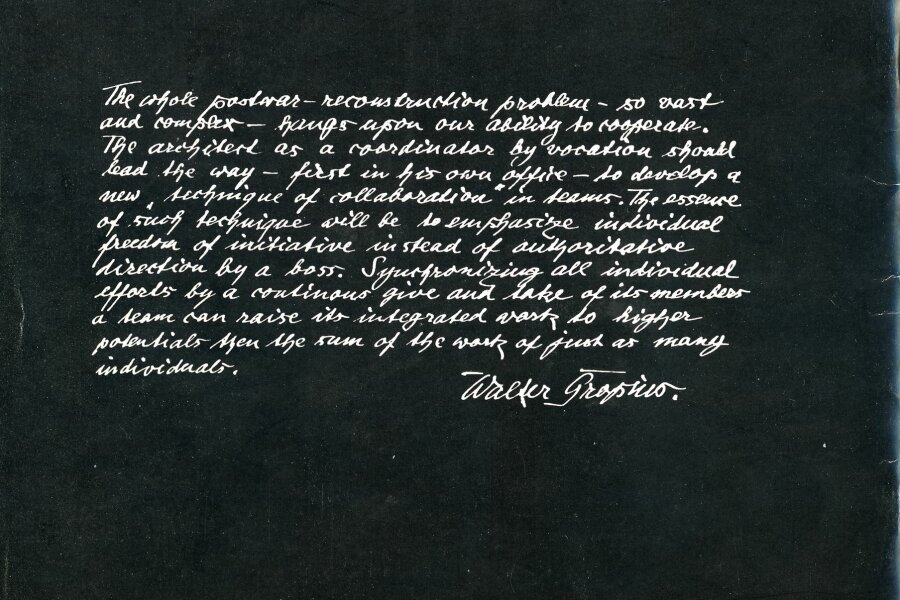 The whole postwar-reconstruction problem - so vast
and complex - hangs upon our ability to cooperate.
The architect as a coordinator by vocation should
lead the way - first in his own office - to develop a
new „technique of collaboration" in teams. The essence
of such technique will be to emphasize individual
freedom of initiative instead of authoritative
direction by a boss. Synchronizing all individual
efforts by a continous give and take of its members
a team can raise its integrated work to higher
potentials then the sum of the work of just as many
individuals.
Walter Gropius.